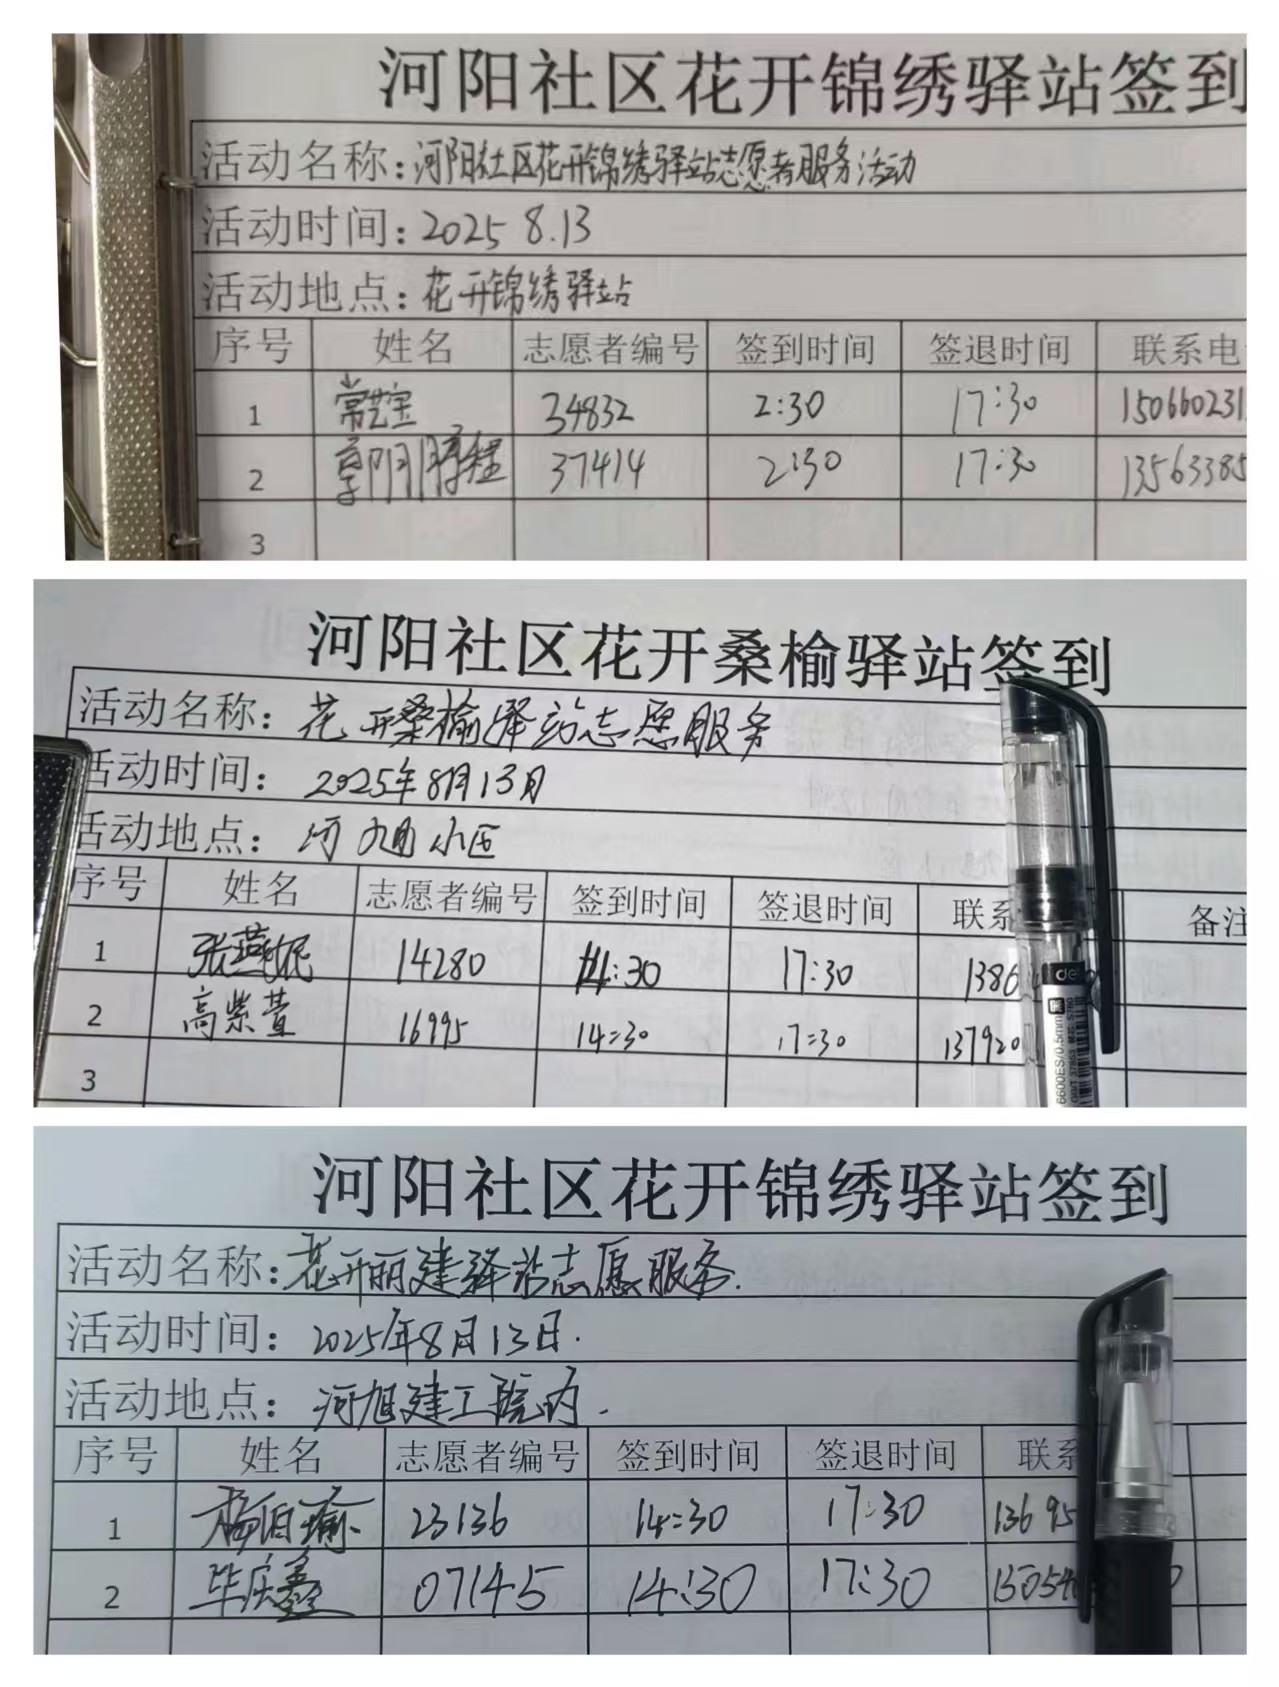 河阳社区花开锦绣驿站签到
活动名称:河阳社区花开锦绣驿站志愿者服务活动
活动时间:2025 8.13
活动地点:花开锦绣驿站
序号 姓名 志愿者编号 签到时间 签退时间 联系电
1 常艺宝 34832 2:30 17:30 15066023
2 37414 2:30 17:30 13563385
3
河阳社区花开桑榆驿站签到
活动名称:花开桑榆驿站志愿服务
活动时间:2025年8月13日
活动地点:河旭小区
序号 姓名 志愿者编号 签到时间 签退时间 联系 备注
1 张燕妮 14280 14:30 17:30 1386
2 高紫萱 16995 14:30 17:30 137920
3
河阳社区花开锦绣驿站签到
活动名称:花开丽建驿站志愿服务.
活动时间:2025年8月13日.
活动地点:河旭建工院内.
序号 姓名 志愿者编号 签到时间 签退时间 联系
1 杨伯瑜 23136 14:30 17:30 13695
2 毕庆鑫 07145 14:30 17:30 13054